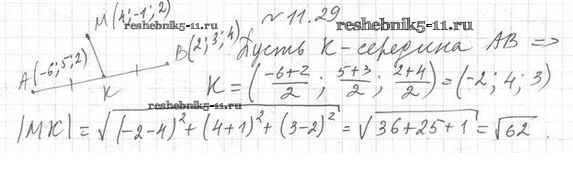 M(4;-1;2)
reshebnik5-11.ru
№ 11.29
reshebnik5-11.ru
A(-6;5;2)
B(2;3;4)
K
Пусть K-середина AB =>
K = (-6+2/2 ; 5+3/2 ; 2+4/2) = (-2; 4; 3)
reshebnik5-11.ru
|MK| = √(-2-4)² + (4+1)² + (3-2)² = √36+25+1 = √62.